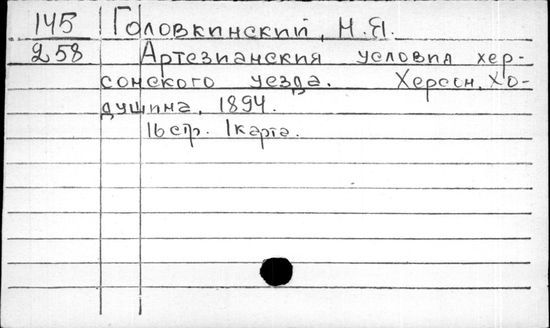 145 Головкинский, Н.Я.
258 Артезианския условия хер-
сонского уезда. Херсон, Хо-
душина, 1894.
16 стр. 1 карта.